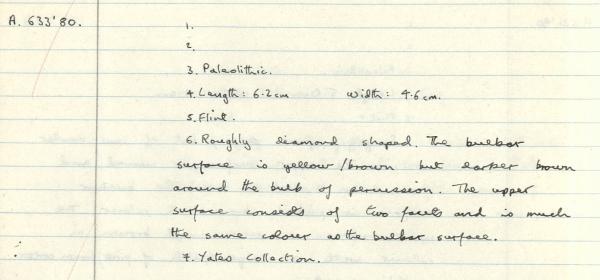 A. 633'80.
1.
2.
3. Paleolithic.
4. Length: 6.2cm Width: 4.6cm.
5. Flint.
6. Roughly diamond shaped. The bulbar
surface is yellow/brown but darker brown
around the bulb of percussion. The upper
surface consists of two facets and is much
the same colour as the bulbar surface.
7. Yates Collection.